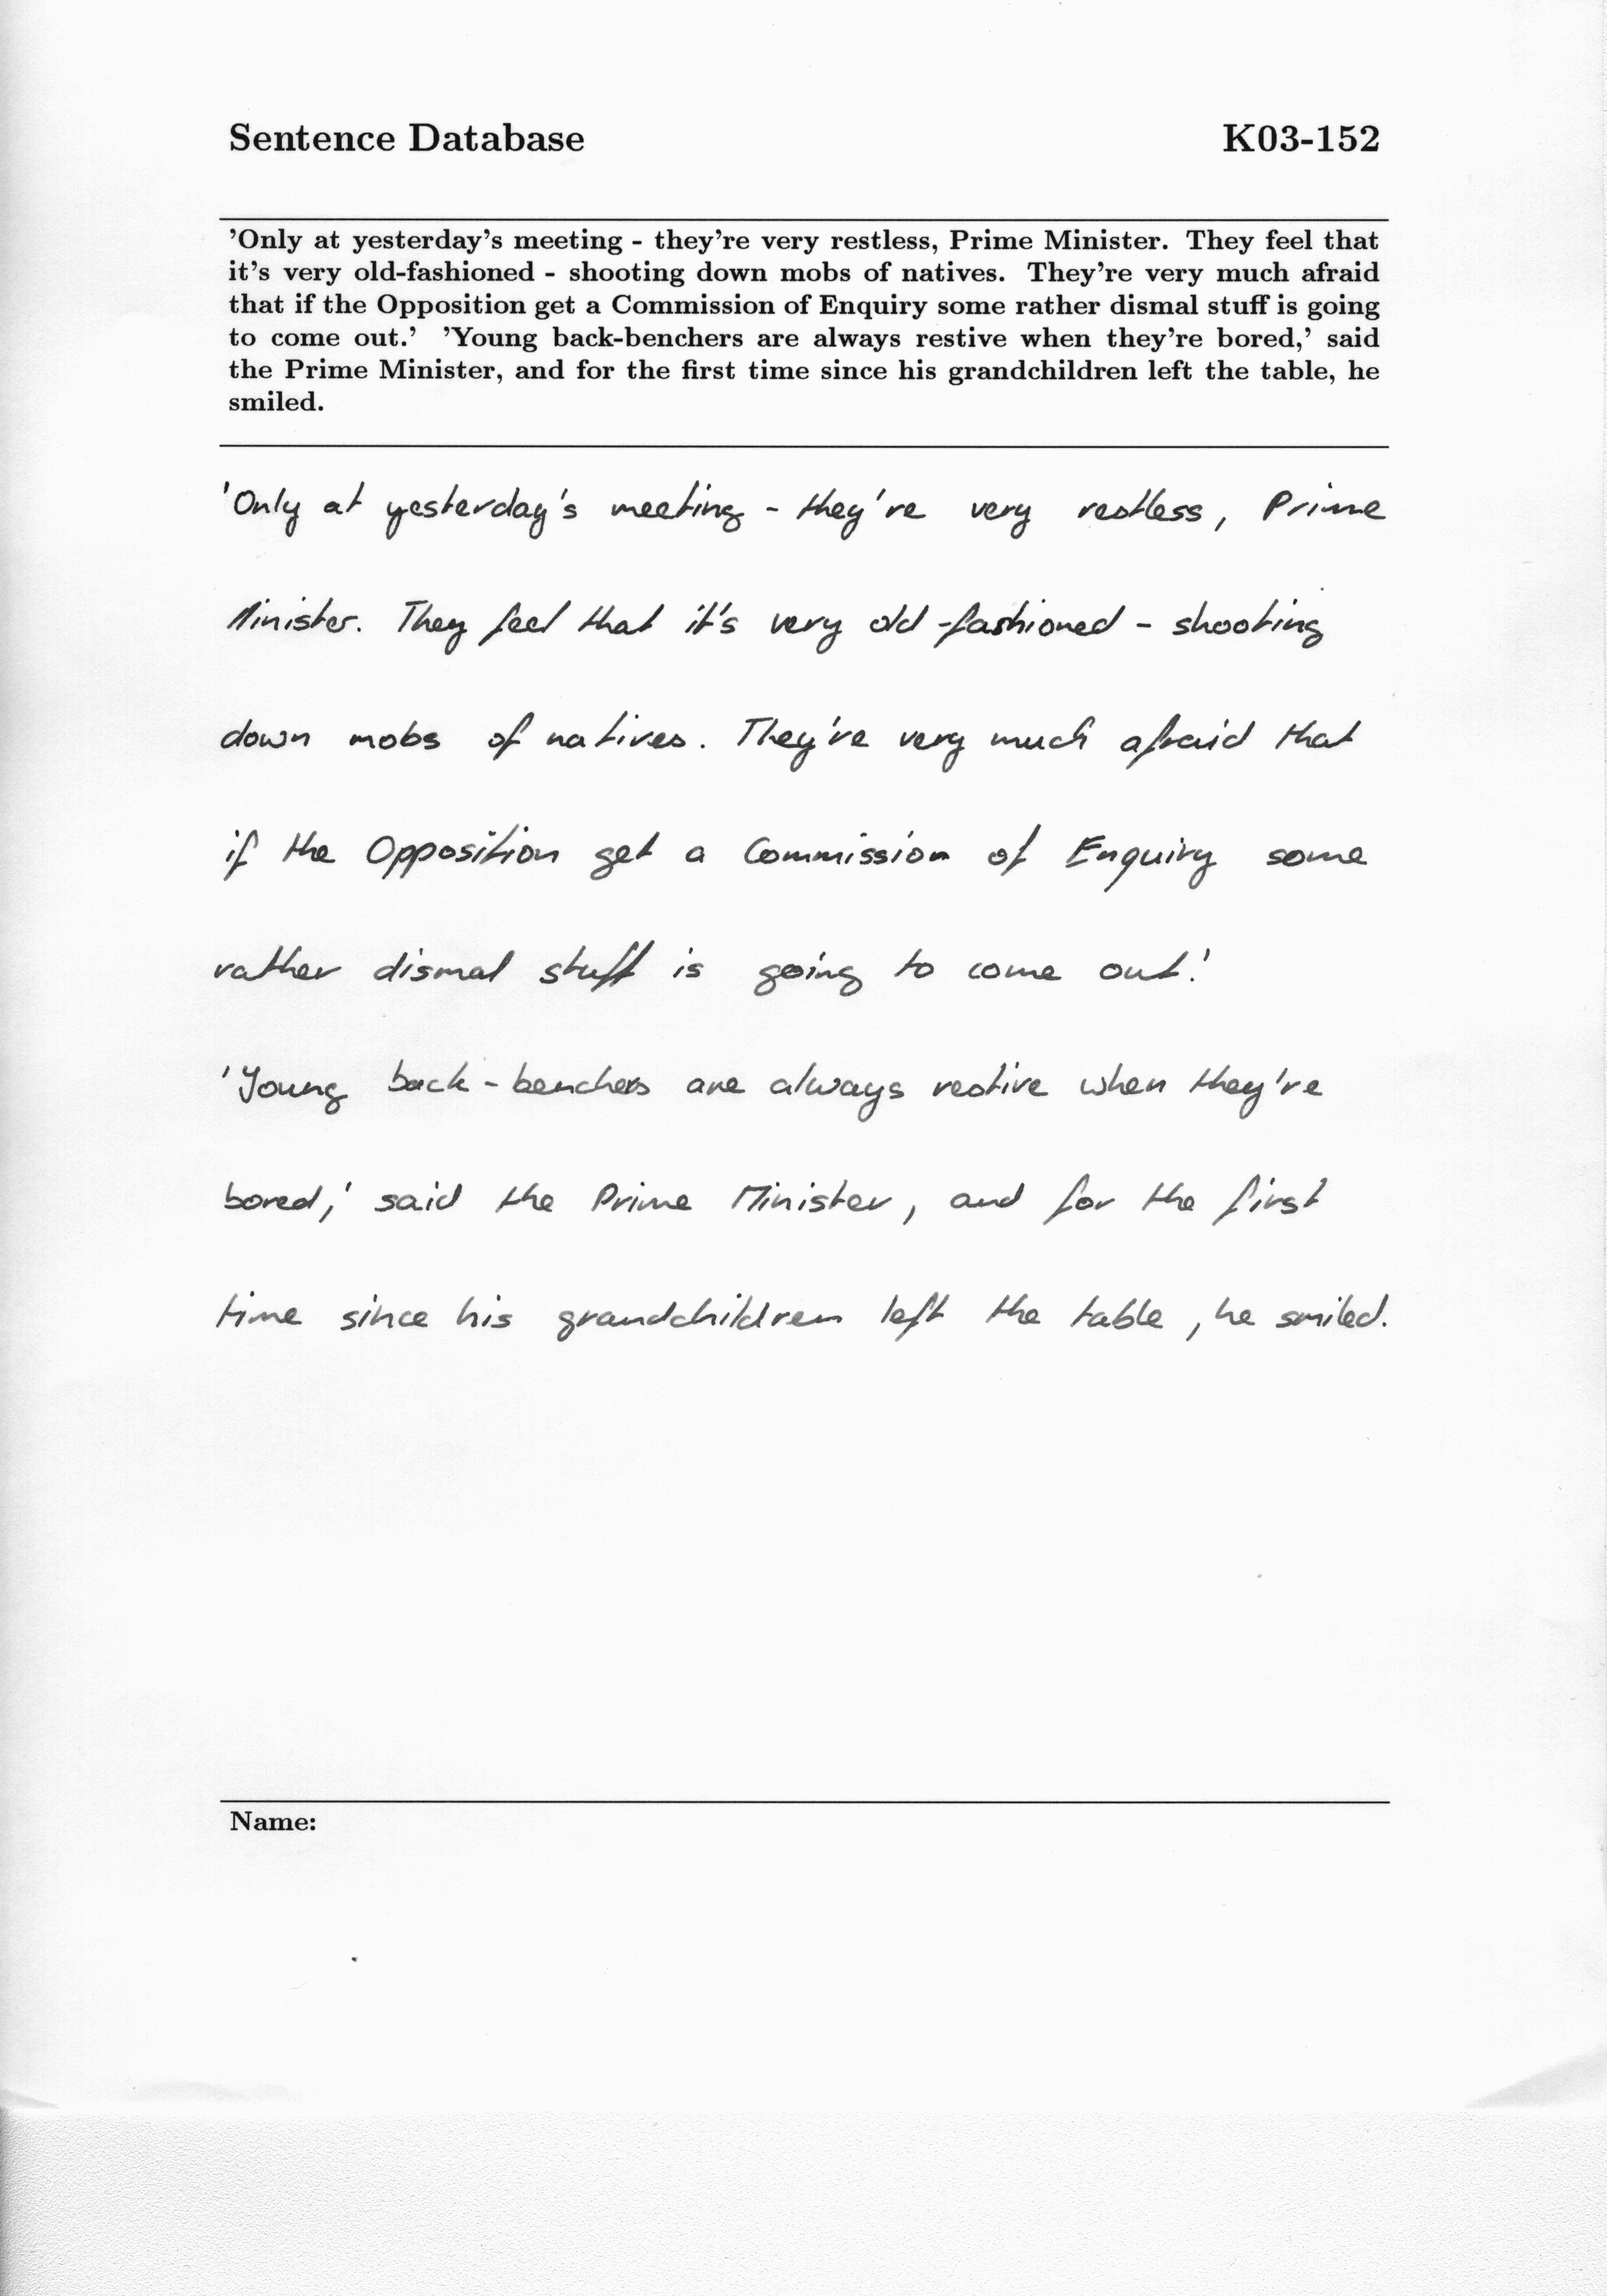 Sentence Database K03-152
'Only at yesterday's meeting - they're very restless, Prime Minister. They feel that
it's very old-fashioned - shooting down mobs of natives. They're very much afraid
that if the Opposition get a Commission of Enquiry some rather dismal stuff is going
to come out.' 'Young back-benchers are always restive when they're bored,' said
the Prime Minister, and for the first time since his grandchildren left the table, he
smiled.
'Only at yesterday's meeting - they're very restless, Prime
Minister. They feel that it's very old-fashioned - shooting
down mobs of natives. They're very much afraid that
if the Opposition get a Commission of Enquiry some
rather dismal stuff is going to come out.'
'Young back-benchers are always restive when they're
bored,' said the Prime Minister, and for the first
time since his grandchildren left the table, he smiled.
Name: